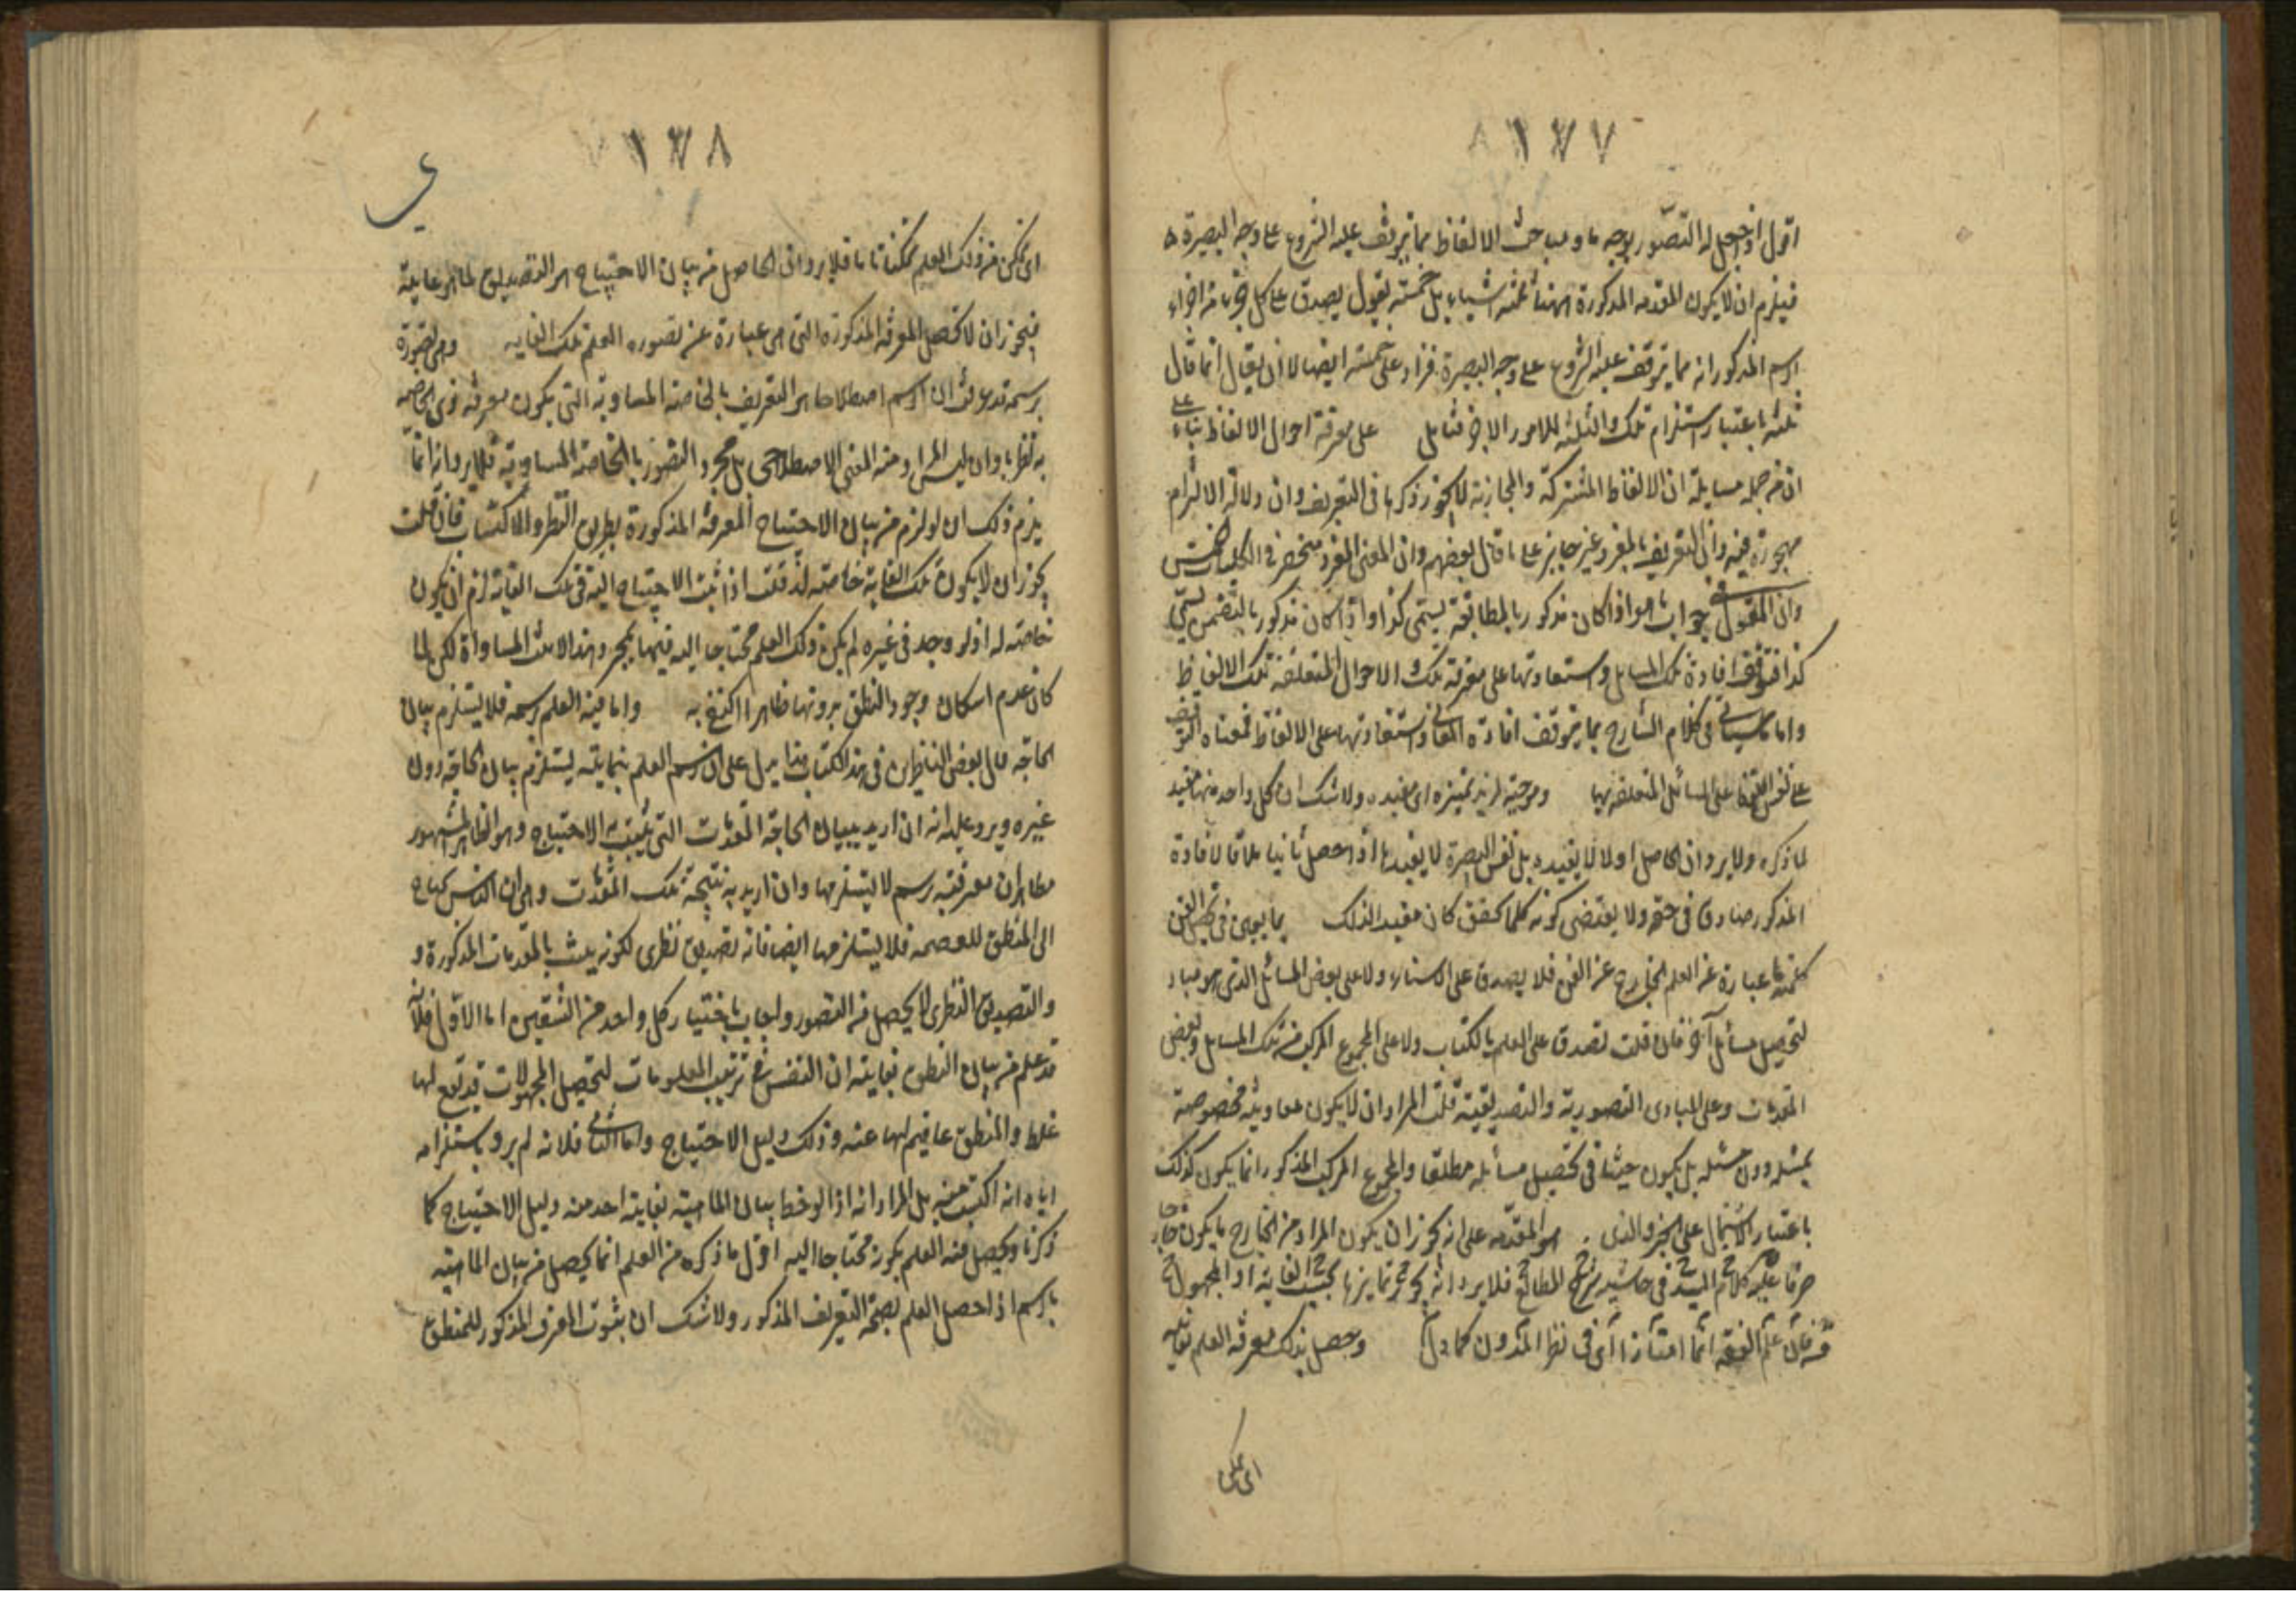 ١٣٧
اقول اذ جعل له التصور بوجه ما ومباحث الالفاظ مما يتوقف عليه الشروع على وجه البصيرة
فيلزم ان لا يكون المقدمه المذكورة ههنا ثلثه اشياء بل خمسته بقول يصدق على كل جزء من اجزاء
الرسم المذكور انه مما يتوقف عليه الشروع على وجه البصيرة فزاد على خمسته ايضا لانا يقال انما قال
ثلثه باعتبار استلزام تلك الثلثه للامور الاخر فتامل على معرفة احوال الالفاظ بناء على
ان من جمله مسايله ان الالفاظ المشتركة والمجازية لا يجوز ذكرها فى التعريف وان دلالة الالتزام
مهجورة فيه وان التعريف بالمفرد غير جايز على ما قال بعضهم وان المعنى المفرد منحصر فى الكليات الخمس
وان المقول فى جواب ما هو اذا كان مذكورا بالمطابقة يسمى كذا واذا كان مذكورا بالتضمن يسمى
كذا فتوقف افادة تلك المسايل واستفادتها على معرفة تلك الاحوال المتعلقة بتلك الالفاظ
واما ما سياتى فى كلام الشارح مما يتوقف افادة المعانى واستفادتها على الالفاظ فمعناه التوقف
على نفس الالفاظ على المسائل المتعلقة بها ومرجيته لزيد تميزه اى مفيده ولا شك ان كل واحد منها مفيد
لما ذكره ولا يرد ان الحاصل اولا لا يفيده بل نفس البصرة لا يفيدها اذ احصل ثانيا ملاقا لافادة
المذكور صادق فى حقه ولا يقتضى كونه كلما تحقق كان مفيدا لذلك بما يوجب فى تحصيل الفن
كلمة ما عبارة عن العلم الخارج عن الفن فلا يصدق على الاستاد ولا على بعض المسائل الذى هو مباد
لتحصيل مسائل آخر فان قلت تصدق على العلم بالكتاب ولا على المجموع المركب من تلك المسايل وبعض
المقدمات وعلى المبادى التصورية والتصديقية قلت المراد ان لا يكون معاونية مخصوصة
بمسئله دون مسئله بل يكون حيثما فى تحصيل مسائله مطلقا والمجموع المركب المذكور انما يكون كذلك
باعتبار الاشتمال على الجزء والذى هو المقدمه على انه يجوز ان يكون المراد من الخارج ما يكون خارجا
صرفا عليه كلام السيد فى حاشيه شرح المطالع فلا يرد انه يجوز تمايزها بحسب الغاية او المجمول
فان علم الفقه انما امتاز اى فى نظر المدون كما دل وحصل بذلك معرفة العلم بغايته
اى علم
١٣٨
اى تمكن من ذلك العلم تمكنا تاما فلا يرد ان الحاصل من بيان الاحتياج هو التصديق لما هو غايته
فيجوز ان لا تحصل المعرفه المذكوره التى هى عبارة عن تصوره العلم بتلك الغايه وهى تصورة
برسمه قد عرفت ان الرسم اصطلاحا هو التعريف بالخاصة المساوية التى يكون معرفه ذى الخاصه
به نظريا وان ليس المراد منه المعنى الاصطلاحى بل مجرد التصور بالخاصة المساوية فلا يرد انه انما
يلزم ذلك ان لو لزم من بيان الاحتياج المعرفة المذكورة بطريق النظر والاكتساب فان قلت
يجوز ان لا يكون تلك الغاية خاصته له قلت اذا ثبت الاحتياج اليه فى تلك الغاية لزم ان يكون
خاصته له اذ لو وجد فى غيره لم يكن ذلك العلم محتاجا اليه فيها بمجرد هذا لا يثبت المساواة لكن لما
كان عدم امكان وجود المنطق بدونها ظاهرا اكتفى به واما فيه العلم برسمه فلا يستلزم بيان
الحاجة قال بعض الناظرين فى هذا الكتاب هذا يدل على ان رسم العلم بغايته يستلزم بيان الحاجة دون
غيره ويرد عليه انه ان اريد ببيان الحاجة المقدمات التى يثبت به الاحتياج وهو الظاهر المشهور
فظاهر ان معرفته برسم لا يستلزمها وان اريد به نتيجة تلك المقدمات وهى ان الناس محتاج
الى المنطق للعصمه فلا يستلزمها ايضا فانه تصديق نظرى لكونه يثبت بالمقدمات المذكورة و
والتصديق النظرى لا يحصل من التصور واجاب باختيار كل واحد من الشقين اما الاول فلانه
قد علم من بيان المنطق بغايته ان النفس فى ترتيب المعلومات لتحصيل المجهولات قد تقع لها
غلط والمنطق عاصم لها عنه وذلك دليل الاحتياج واما الثانى فلانه لم يرد باستلزامه
اياه انه اكتسب منه بل المراد انه اذا لوحظ بيان الماهية بغايته احد منه دليل الاحتياج كما
ذكرنا ويحصل منه العلم بكونه محتاجا اليه اقول ما ذكره من العلم انما يحصل من بيان الماهية
بالرسم اذا حصل العلم بصحة التعريف المذكور ولا شك ان بثبوت المعرف المذكور للمنطق